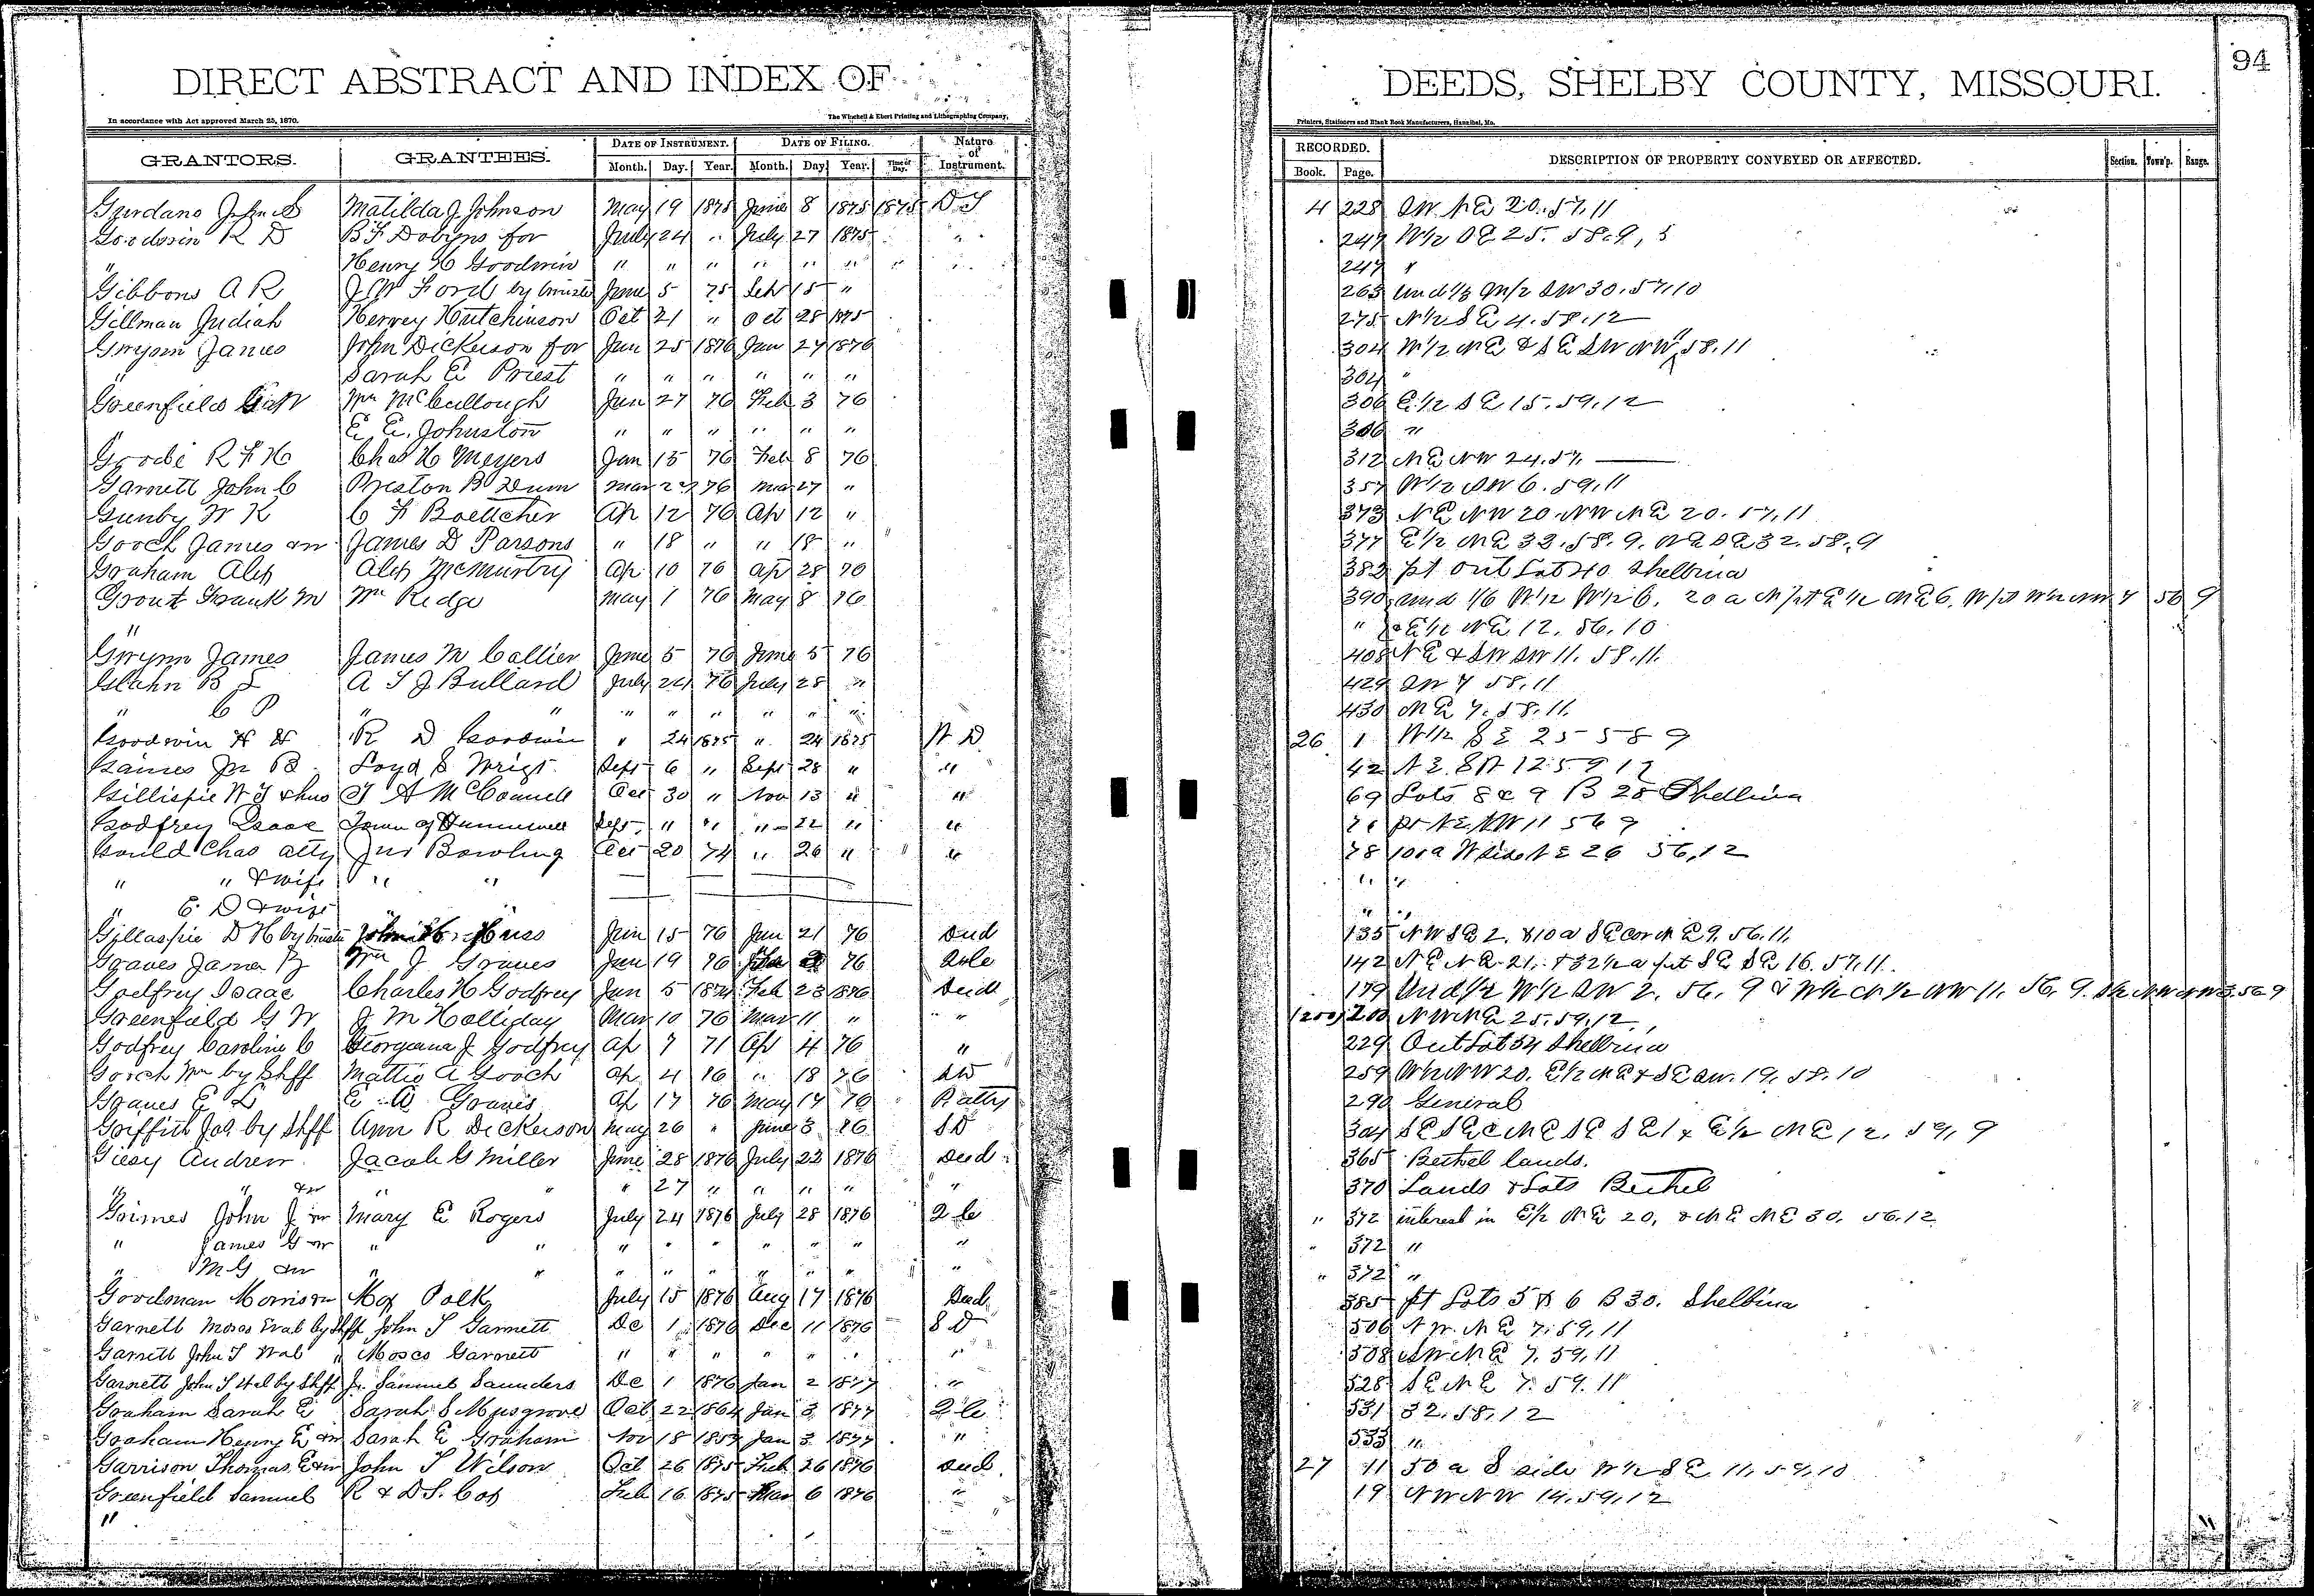 94
DIRECT ABSTRACT AND INDEX OF DEEDS, SHELBY COUNTY, MISSOURI.
In accordance with Act approved March 25, 1870. The Winchell & Ebert Printing and Lithographing Company, Printers, Stationers and Blank Book Manufacturers, Hannibal, Mo.
GRANTORS. GRANTEES. DATE OF INSTRUMENT. DATE OF FILING. Nature of Instrument. RECORDED. DESCRIPTION OF PROPERTY CONVEYED OR AFFECTED. Section. Town'p. Range.
Month. Day. Year. Month. Day Year. Time of Day. Book. Page.
John S Matilda J Johnson May 19 1875 June 8 1875 1875 D T 4 228 SW NE 20. 57. 11
Goodwin R D B F Dobyns for July 24 " July 27 1875 " 247 W1/2 SE 25. 58. 9
" Henry H Goodwin " " " " " " " " 247 "
Gibbons A R J W Ford by trustee June 5 75 Sep 15 " 263 und 1/3 SW 30. 57. 10
Gillman Judiah Hervey Hutchinson Oct 21 " Oct 28 1875 275 N1/2 SE 4. 58. 12
Gwynn James John Dickerson for Jan 25 1876 Jan 27 1876 304 W1/2 NE & SE SW NW 58. 11
" Sarah E Priest " " " " " " 304 "
Greenfield G W Wm McCullough Jan 27 76 Feb 3 76 306 E1/2 SE 15. 59. 12
" E E. Johnston " " " " " " 306 "
R F H Chas H Meyers Jan 15 76 Feb 8 76 312 NE NW 24. 57.
Garnett John C Preston B Dunn Mar 27 76 Mar 27 " 357 W1/2 SW 6. 59. 11
Gunby W K C F Boettcher Ap 12 76 Ap 12 " 373 NE NW 20. NW NE 20. 57. 11
Gooch James & w James D Parsons " 18 " " 18 " 377 E1/2 NE 32. 58. 9. NE SE 32. 58. 9
Graham Alex Alex McMurtry Ap 10 76 Ap 28 76 382 pt Out Lot 40 Shelbina
Grout Frank M Wm Ridge May 1 76 May 8 76 390 und 1/6 W1/2 W1/2 6. 20 a N pt E1/2 NE 6. N pt W1/2 NW 7 56 9
" " & E1/2 NE 12. 56. 10
Gwynn James James M Collier June 5 76 June 5 76 408 NE & SW SW 11. 58. 11.
Glahn B L A T J Bullard July 24 76 July 28 " 429 SW 7 58. 11
" C P " " " " " " " " 430 NE 7. 58. 11.
Goodwin H H R D Goodwin " 24 1875 " 24 1875 W D 26 1 W1/2 SE 25 58 9
Gaines Jr B Loyd S Sept 6 " Sept 28 " " 42 NE. SW 12 59 12
Gillispie W T & hus T A McConnell Oct 30 " Nov 13 " " 69 Lots 8 & 9 B 28 Shelbina
Godfrey Isaac Town of Hunnewell Sept. " " " 22 " " 71 pt NE NW 11 56 9
Gould Chas atty Jno Bowling Oct 20 74 " 26 " " 78 W side NE 26 56, 12
" " & wife " " " "
" E. D & wife " "
Gillaspie D H by trustee John H. Huss Jan 15 76 Jan 21 76 Deed 135 NW SE 2. & 10 a SE cor NE 9. 56. 11.
Graves James Wm J Graves Jan 19 76 76 Q Cle 142 NE NE 21. & 32 1/2 a pt SE SE 16. 57. 11.
Godfrey Isaac Charles H Godfrey Jan 5 1874 Feb 23 1876 Deed 179 Und 1/2 W1/2 SW 2. 56. 9 & W1/2 N1/2 NW 11. 56. 9.
Greenfield G W J M Holliday Mar 10 76 Mar 11 " " 200 NW NE 25. 59. 12.
Godfrey Caroline C Georgeana J Godfrey Ap 7 71 Ap 4 76 " 229 Out Lot 54 Shelbina
Gooch Wm by Shff Mattie A Gooch Ap 4 76 " 18 76 SD 259 W1/2 NW 20. E1/2 NE & SE 19. 58. 10
Graves E L E A Graves Ap 17 76 May 17 76 P atty 290 General
Griffith Jas by Shff Ann R Dickerson May 26 " June 3 76 S D 304 SE SE & NE SE SE 1 & E1/2 NE 12. 59. 9
Giesy Andrew Jacob G Miller June 28 1876 July 22 1876 Deed 365 Bethel lands.
" " & w " " " 27 " " " " " 370 Lands & Lots Bethel
Grimes John J & w Mary E Rogers July 24 1876 July 28 1876 Q Cle " 372 interest in E1/2 NE 20, & NE NE 30. 56. 12
" James G & w " " " " " " " " " " 372 "
" M G & w " " " " " " " " " " 372 "
Goodman Morrison Polk July 15 1876 Aug 17 1876 Deed 385 pt Lots 5 & 6 B 30. Shelbina
Garnett Moses by Shff John T Garnett De 1 1876 Dec 11 1876 S D 506 NW. NE 7. 59, 11
Garnett John T " Moses Garnett " " " " " " " 508 SW NE 7. 59, 11
Garnett John T et al by Shff Jr. Samuel Saunders De 1 1876 Jan 2 1877 " 528 SE NE 7. 59. 11
Graham Sarah E Sarah S Musgrove Oct 22 1864 Jan 3 1877 Q Cle 531 32. 58. 12
Graham Henry E & w Sarah E Graham Nov 18 1857 Jan 3 1877 " 533 "
Garrison Thomas E & w John T Wilson Oct 26 1875 Feb 26 1876 Deed 27 11 50 a S side W1/2 SE 11. 57. 10
Greenfield Samuel R & D S. Cox Feb 16 1875 Mar 6 1876 " 19 NW NW 14. 59. 12
"